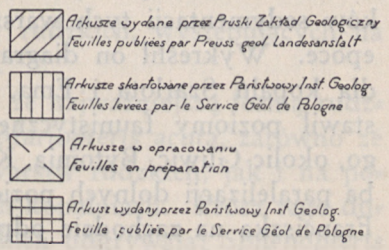 Arkusze wydane przez Pruski Zakład Geologiczny
Feuilles publiées par Preuss geol. Landesanstalt
Arkusze skartowane przez Państwowy Inst Geolog.
Feuilles levées par le Service Géol de Pologne
Arkusze w opracowaniu
Feuilles en préparation
Arkusz wydany przez Państwowy Inst Geolog.
Feuille publiée par le Service Géol de Pologne